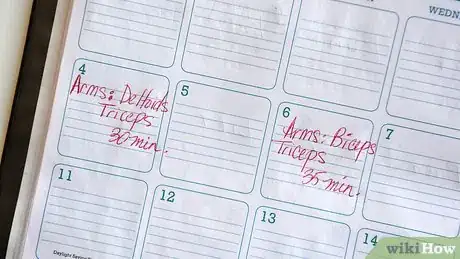 WEDN
4
Arms: Deltoids
Triceps
30-min.
5
6
Arms: Biceps
Triceps
35-min.
7
11
12
13
14
Daylight Saving
wikiHow